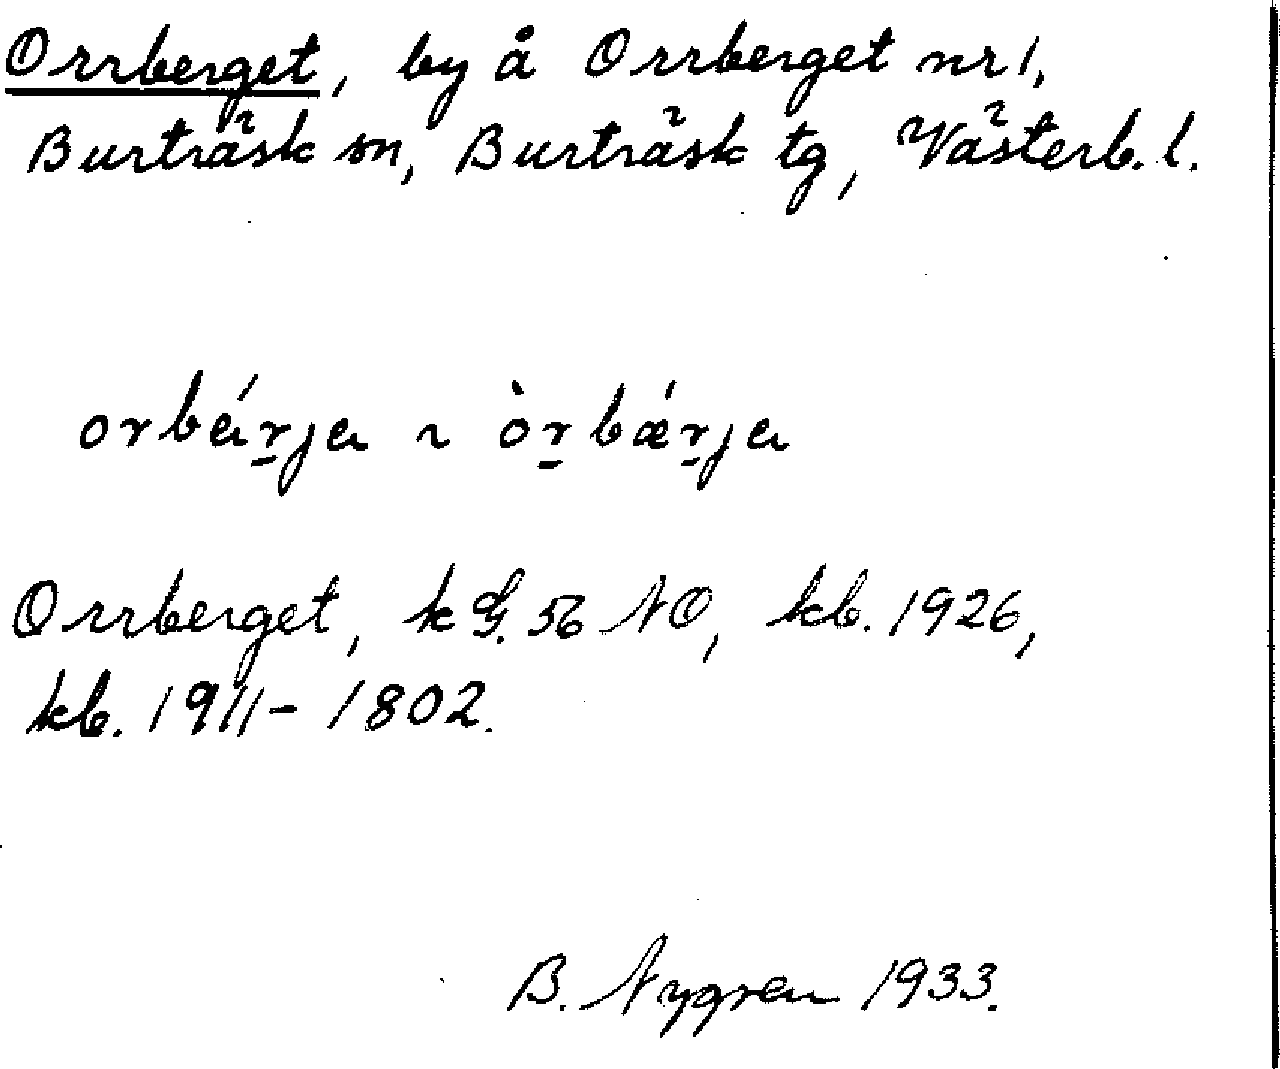 Orrberget, by å Orrberget nr 1,
Burträsk sn, Burträsk tg, Västerb. l.
orbá̱rja ~ òr̠bǽr̠ja
Orrberget, k G. 56 NO, kb. 1926,
kb. 1911-1802.
B. Nygren 1933.